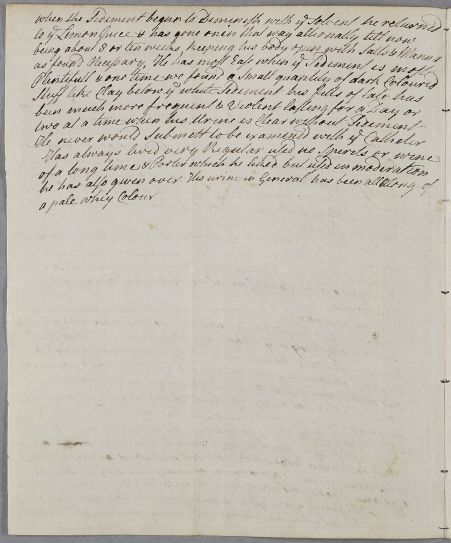 when the Sediment begun to Diminish with ye Solvent he returned
to ye Lemon Juice & has gone on in that way alternatly till now
being about 8 or ten weeks, keeping his body open with Salts & Manna
as found Necessary, He has most Ease when ye Sediment is most
Plentifull & one time we found a Small quantity of dark Coloured
Stuff like Clay below ye white Sediment his fitts of late has
been much more frequent & Violent lasting for a Day or
two at a time when his Urene is Clear without Sediment
He never would Submitt to be examined with ye Catheter
Has always lived very Regular used no Spirets or wine
of a long time & Porter which he liked but used in moderation
he has also given over His urine in General has been all along of
a pale whey Colour